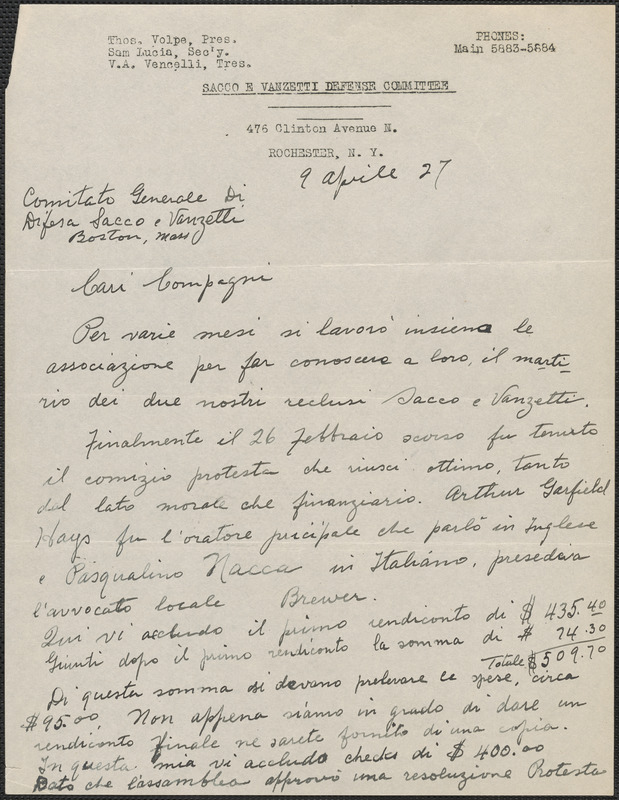 Thos. Volpe, Pres.
Sam Lucia, Sec'y.
V.A. Vencelli, Tres.
PHONES:
Main 5883-5884
SACCO E VANZETTI DEFENSE COMMITTEE
476 Clinton Avenue N.
ROCHESTER, N. Y.
9 aprile 27
Comitato Generale Di
Difesa Sacco e Vanzetti
Boston, Mass
Cari Compagni
Per varie mesi si lavoró insiema le
associazione per far conoscere a loro, il marti-
rio dei due nostri reclusi Sacco e Vanzetti.
Finalmente il 26 Febbraio scorso fu tenuto
il comizio protesta che riusci ottimo, tanto
dal lato morale che finanziario. Arthur Garfield
Hays fu l'oratore pricipale che parlò in Inglese
e Pasqualino Nacca in Italiano, presedeva
l'avvocato locale Brewer.
Qui vi accludo il primo rendiconto di $ 435.40
Giunti dopo il primo rendiconto la somma di $ 74.30
Totale $509.70
Di questa somma si devano prelevare le spese, circa
$95.00. Non appena siamo in grado di dare un
rendiconto finale ne sarete forniti di una copia.
In questa mia vi accludo checks di $ 400.00
Dato che l'assamblea approvò una resoluzione Protesta